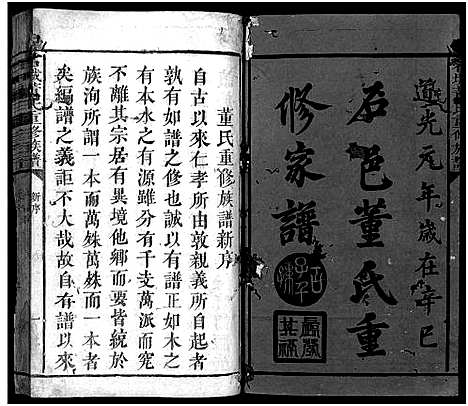 道光元年歲在辛巳
石邑董氏重
修家譜
董氏重修族譜新序
自古以來仁孝所由敦親義所自起者
孰有如譜之修也誠以有譜正如木之
有本水之有源雖分有千支萬派而究
不離其宗居有異境他鄉而要皆統於
族洵所謂一本而萬殊萬殊而一本者
矣編譜之義詎不大哉故自有譜以來
重修族譜
新序